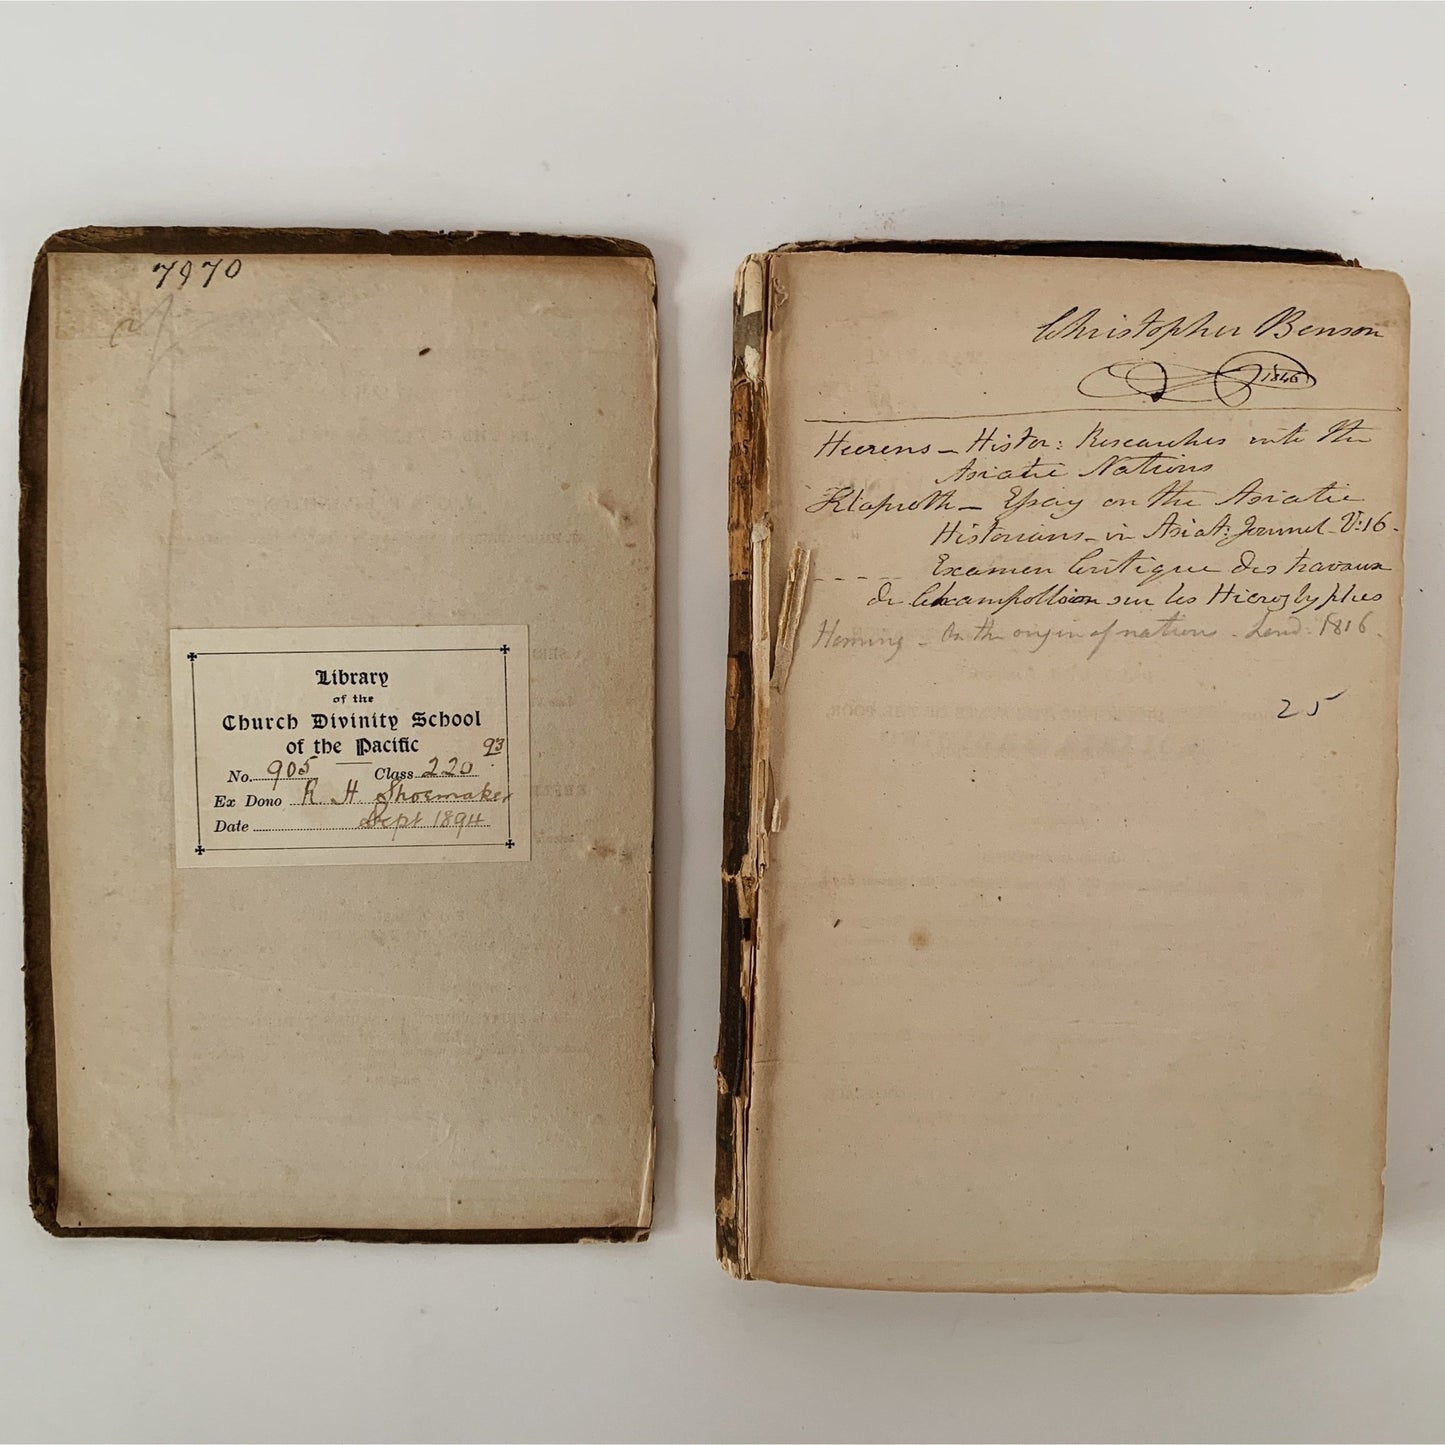 7970
Library
of the
Church Divinity School
of the Pacific
93
No. 905 Class 220
Ex Dono R. H. Shoemaker
Date Sept 1894
Christopher Benson
1846
Heerens - Histor: Researches into the
Asiatic Nations
Klaproth - Essay on the Asiatic
Historians - in Asiat: Journal V:16 -
- - - - Examen Critique des travaux
de Champollion sur les Hieroglyphes
On the origin of nations. Lond: 1816.
25